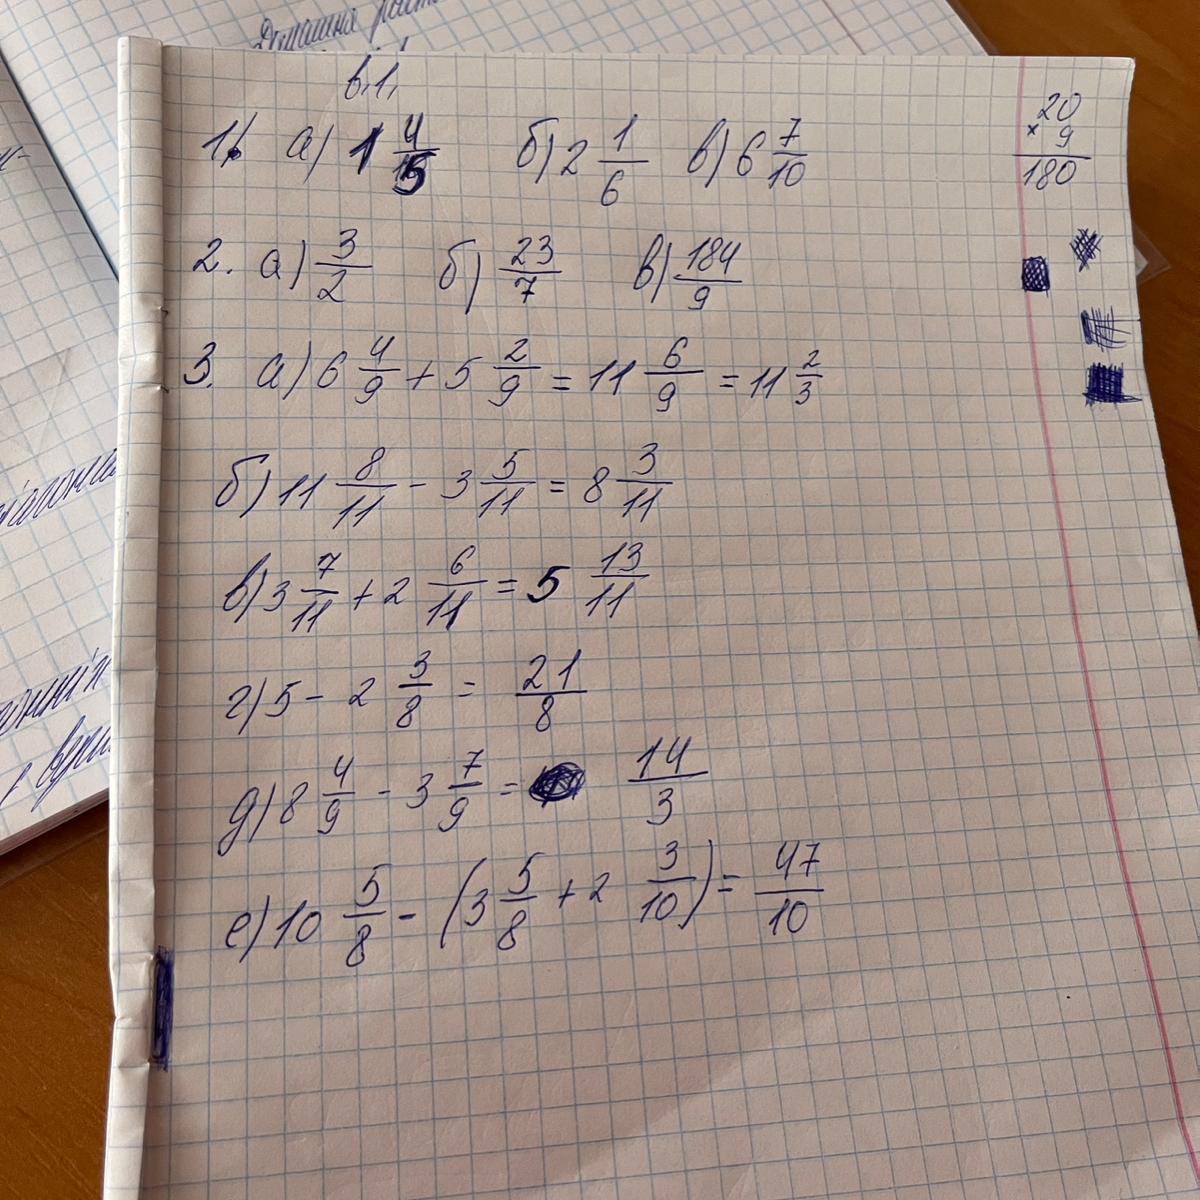 Домашна
в.1.
1. а) 1 4/5 б) 2 1/6 в) 6 7/10
20
× 9
180
2. а) 3/2 б) 23/7 в) 184/9
3. а) 6 4/9 + 5 2/9 = 11 6/9 = 11 2/3
б) 11 8/11 - 3 5/11 = 8 3/11
в) 3 7/11 + 2 6/11 = 5 13/11
г) 5 - 2 3/8 = 21/8
д) 8 4/9 - 3 7/9 = 14/3
е) 10 5/8 - (3 5/8 + 2 3/10) = 47/10